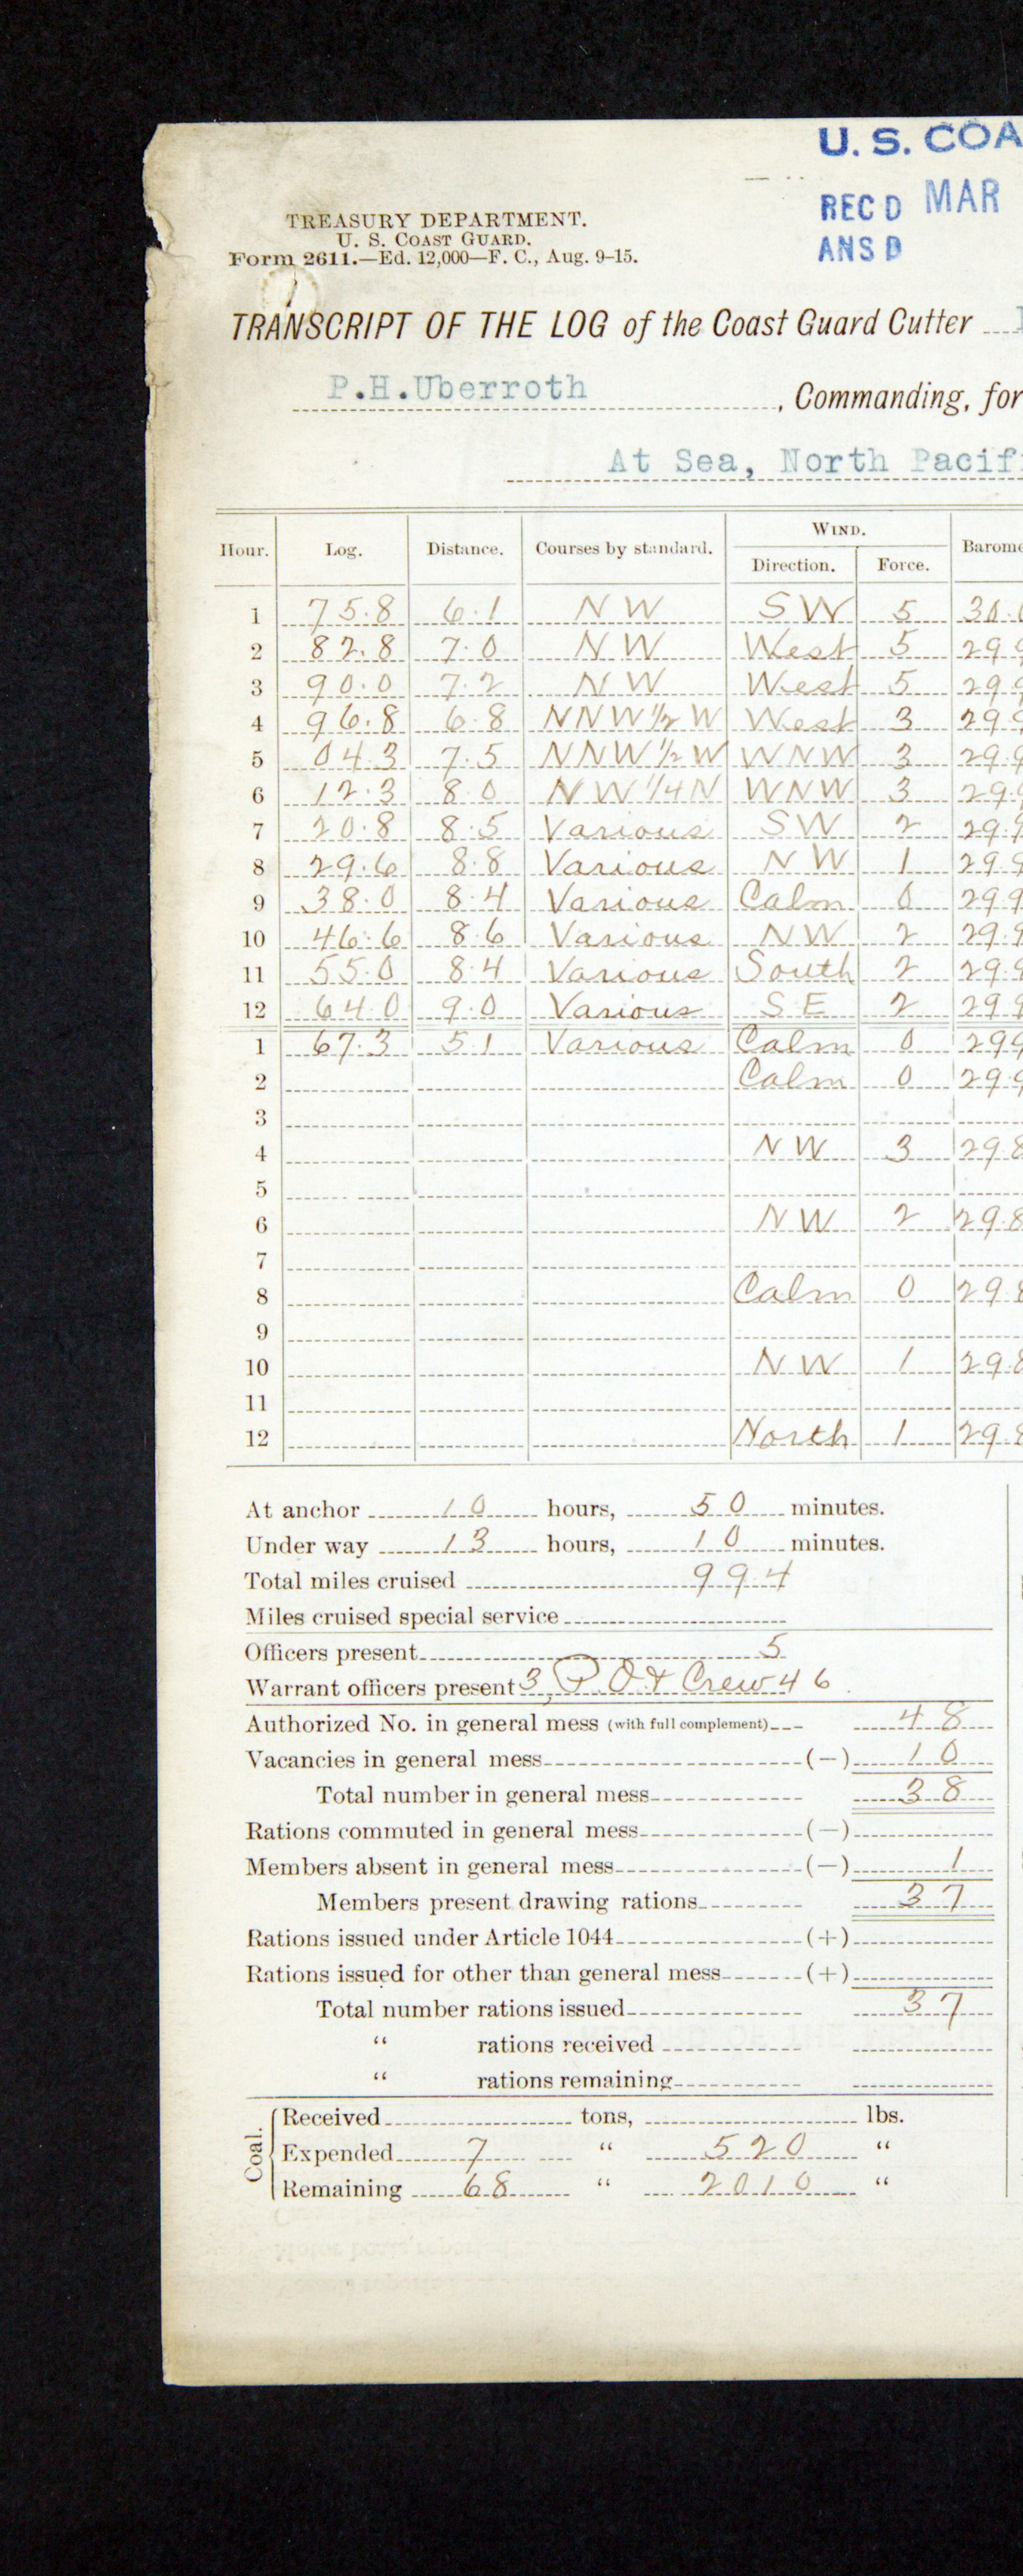 U. S. COA
REC D MAR
ANS D
TREASURY DEPARTMENT.
U. S. COAST GUARD.
Form 2611.—Ed. 12,000—F. C., Aug. 9-15.
TRANSCRIPT OF THE LOG of the Coast Guard Cutter
P.H.Uberroth, Commanding, for
At Sea, North Pacif
WIND.
Hour. Log. Distance. Courses by standard. Direction. Force. Barome
1 75.8 6.1 NW SW 5 30.0
2 82.8 7.0 NW West 5 29.9
3 90.0 7.2 NW West 5 29.9
4 96.8 6.8 NNW 1/2 W West 3 29.9
5 04.3 7.5 NNW 1/2 W WNW 3 29.9
6 12.3 8.0 NW 1/4 N WNW 3 29.9
7 20.8 8.5 Various SW 2 29.9
8 29.6 8.8 Various NW 1 29.9
9 38.0 8.4 Various Calm 0 29.9
10 46.6 8.6 Various NW 2 29.9
11 55.0 8.4 Various South 2 29.9
12 64.0 9.0 Various SE 2 29.9
1 67.3 5.1 Various Calm 0 29.9
2 Calm 0 29.9
3
4 NW 3 29.8
5
6 NW 2 29.8
7
8 Calm 0 29.8
9
10 NW 1 29.8
11
12 North 1 29.8
At anchor 10 hours, 50 minutes.
Under way 13 hours, 10 minutes.
Total miles cruised 99.4
Miles cruised special service
Officers present 5
Warrant officers present 3, P.O. & Crew 46
Authorized No. in general mess (with full complement) 48
Vacancies in general mess (—) 10
Total number in general mess 38
Rations commuted in general mess (—)
Members absent in general mess (—) 1
Members present drawing rations 37
Rations issued under Article 1044 (+)
Rations issued for other than general mess (+)
Total number rations issued 37
“ rations received
“ rations remaining
Coal.
Received tons, lbs.
Expended 7 “ 520 “
Remaining 68 “ 2010 “